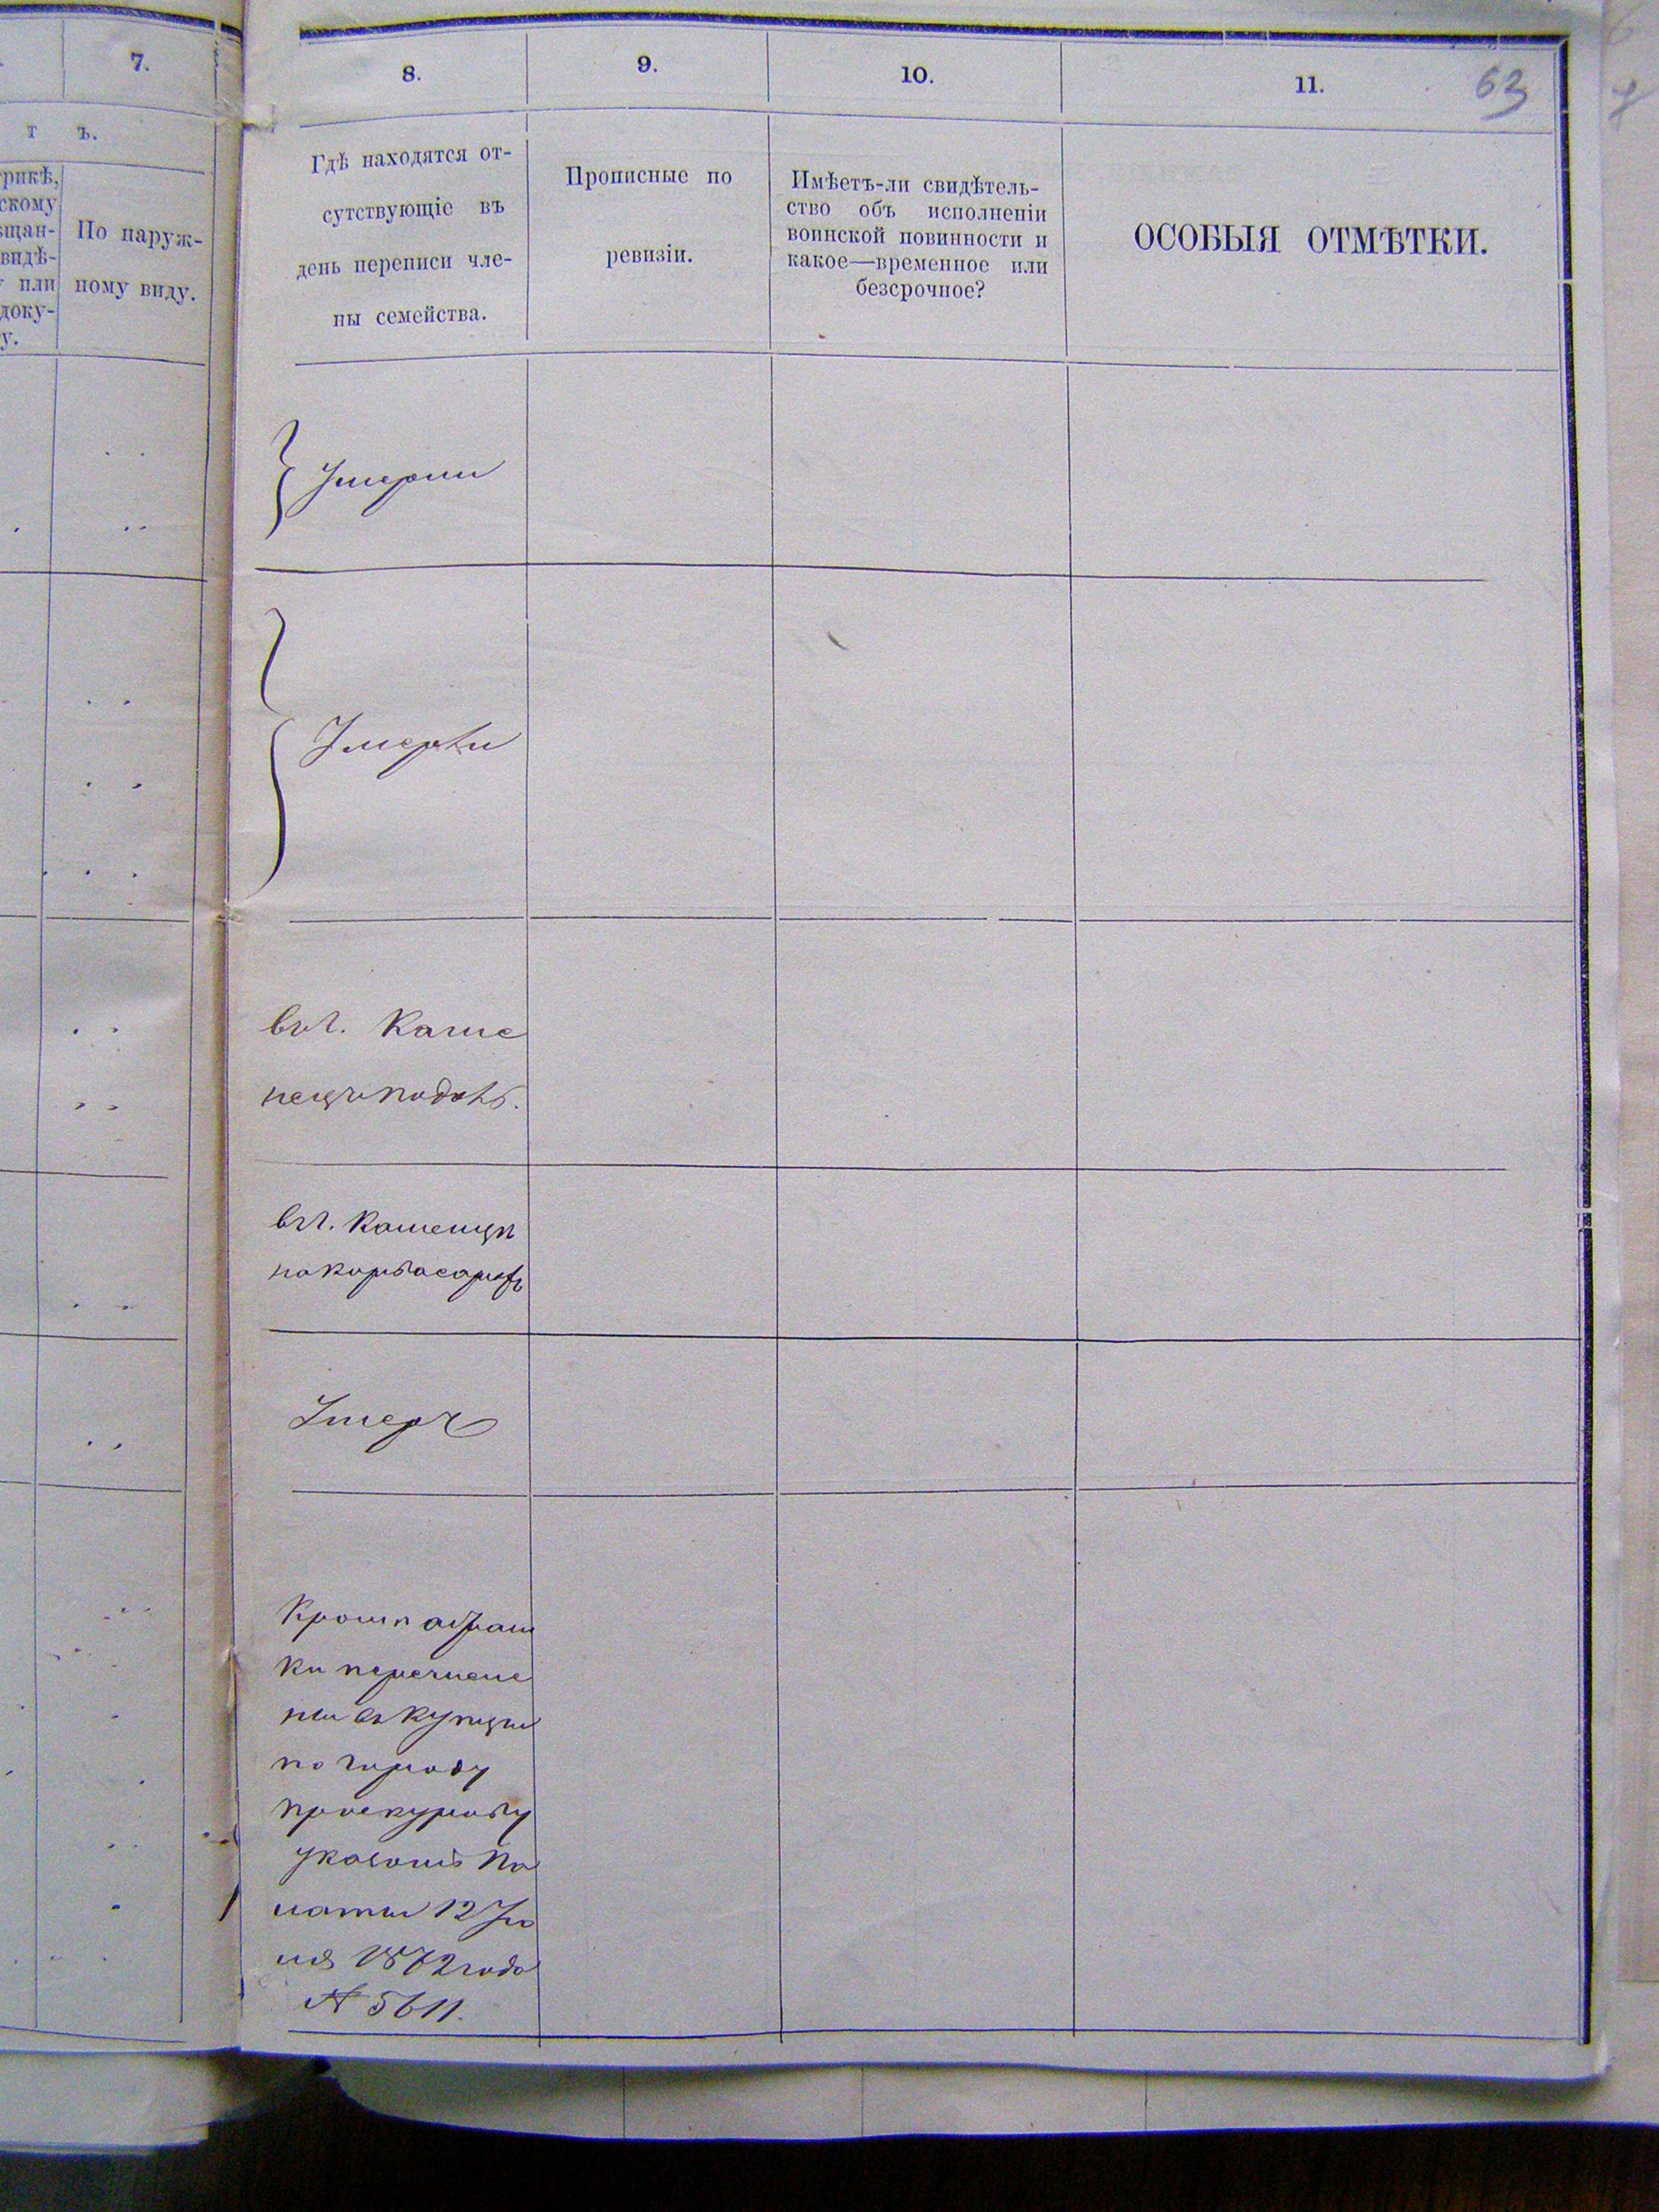 7.
8.
9.
10.
11.
63
т ъ.
рикѣ,
скому
ѣщан-
видѣ-
или
доку-
у.
По наруж-
ному виду.
Гдѣ находятся от-
сутствующіе въ
день переписи чле-
ны семейства.
Прописные по
ревизіи.
Имѣетъ-ли свидѣтель-
ство объ исполненіи
воинской повинности и
какое—временное или
безсрочное?
ОСОБЫЯ ОТМѢТКИ.
Умерли
Умерли
въ г. Каме
нецъ подол.
въ г. Каменцѣ
Умеръ
Кромѣ
ки перечисле
ны въ купцы
по городу
Проскурову
указомъ Па
латы 12 Ію
ля 1872 года
№ 5611.